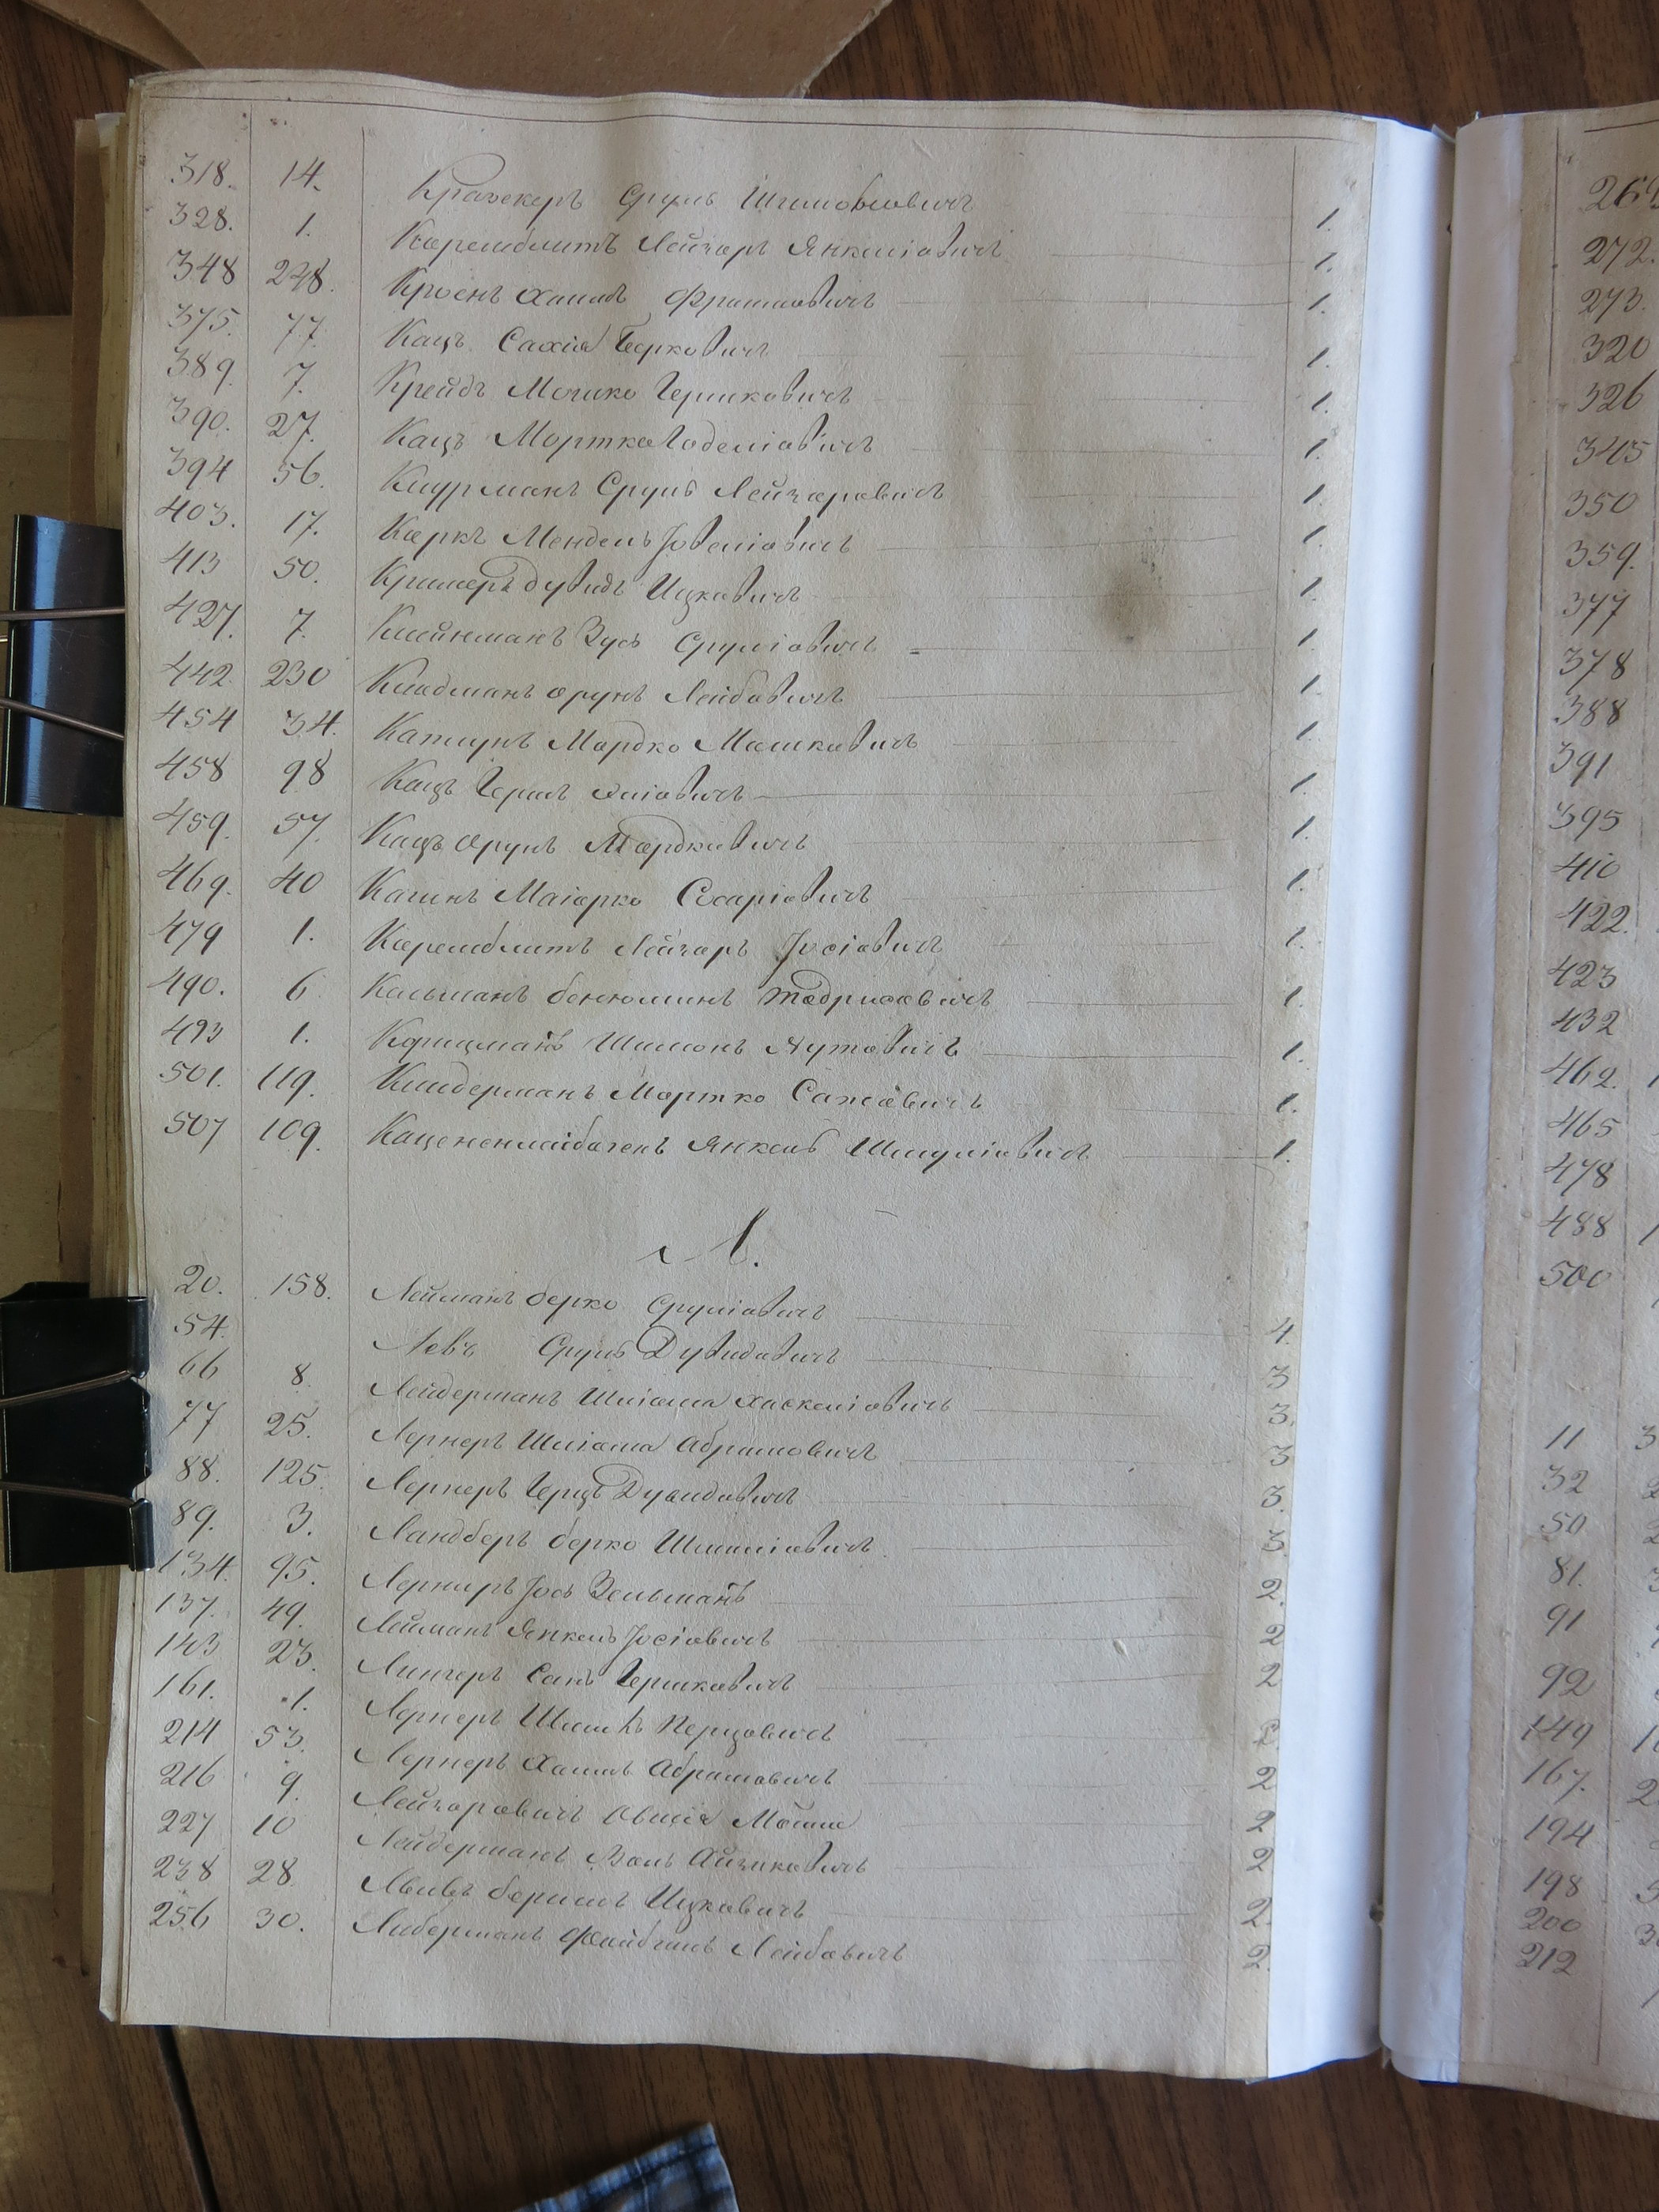 318. 14. Крамеръ Сруль Шлиомовичъ 1.
328. 1. Каремблитъ Лейзаръ Янкелiовичъ 1.
348 228. Кроснъ Хаимъ Фраимовичъ 1.
375. 77. Кацъ Сахiя Берковичъ 1.
389. 7. Крейдъ Мошко Гершковичъ 1.
390. 27. Кацъ Мортко Годелiовичъ 1.
394 56. Сруль Лейзаровичъ 1.
403. 17. Каркъ Мендель Iовелiовичъ 1.
413 50. Кримеръ Дувидъ Ицковичъ 1.
427. 7. Клейнманъ Зусь Срулiовичъ 1.
442. 230 Кладманъ Орунъ Лейбовичъ 1.
454 34. Капшунъ Мордко Мошковичъ 1.
458 98 Кацъ Гершъ Элiовичъ 1.
459. 57. Кацъ Орунъ Мордковичъ 1.
469. 40 Каганъ Маiорко 1.
479 1. Каремблитъ Лейзаръ Iосiовичъ 1.
490. 6 Кальманъ Бенюминъ Тодрисовичъ 1.
493 1. Корицманъ Шимонъ Нутовичъ 1.
501. 119. Киндерманъ Мортко 1.
507 109. Каценеленбогенъ Янкель Шмулiовичъ 1.
Л.
20. 158. Лейманъ Берко Срулiовичъ 4.
54. Левъ Сруль Дувидовичъ 3
66 8. Лейдерманъ Шлiома Хаскелiовичъ 3.
77 25. Лернеръ Шлiома Абрамовичъ 3
88. 125. Лернеръ Герцъ Дувидовичъ 3.
89. 3. Ландберъ Берко Шмилiовичъ 3.
134. 95. Лерниръ Iось Зельманъ 2.
137. 49. Лейманъ Янкель Iосiовичъ 2
143 23. Лингеръ Санъ Гершковичъ 2
161. 1. Лернеръ Перцовичъ 2.
214 53. Лернеръ Хаимъ Абрамовичъ 2
216 9. Лейзаровичъ Овшiя Мошке 2
227 10 Лейдерманъ Айзиковичъ 2
238 28. Львивъ Беримъ Ицковичъ 2.
256 30. Либерманъ Файбишъ Лейбовичъ 2.
272.
273.
320
326
345
350
359.
377
378
388
391
395
410
422.
423
432
462.
465
478
488
500
11
32
50
81.
91
92
149
167.
194
198
200
212